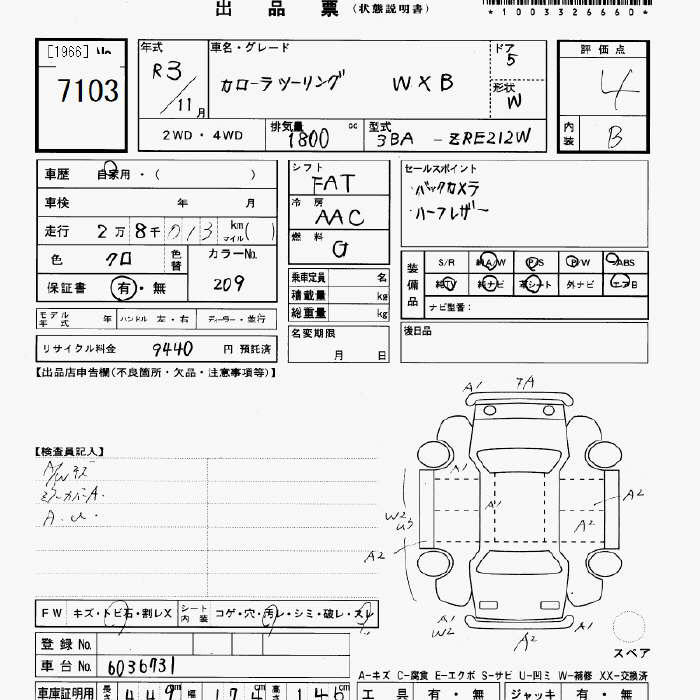 出品票(状態説明書)
*1003326660*
[1966]
7103
年式
R3/11月
車名・グレード
カローラツーリング WXB
ドア
5
形状
W
評価点
4
内装
B
2WD・4WD
排気量
1800 cc
型式
3BA-ZRE212W
車歴 自家用・( )
車検 年 月
走行 2万8千013 km マイル( )
色 クロ
色替
カラーNo.
209
保証書 有・無
シフト
FAT
冷房
AAC
燃料
G
乗車定員 名
積載量 kg
総重量 kg
名変期限
月 日
セールスポイント
・バックカメラ
・ハーフレザー
装備品
S/R 純A/W P/S P/W ABS
純TV 純ナビ 革シート 外ナビ エアB
ナビ型番:
後日品
モデル年式 年 ハンドル 左・右 ディーラー・並行
リサイクル料金 9440 円 預託済
【出品店申告欄(不良箇所・欠品・注意事項等)】
【検査員記入】
A/Wキズ
ミラーカバーA.
A.U.
A1 7A
A1
A1
A2
A2
W2
U3
A2
A1
W2
A2
A1
スペア
FW キズ・トビ石・割レX
シート内装 コゲ・穴・汚レ・シミ・破レ・スレ
登録No.
車台No. 6036731
A-キズ C-腐食 E-エクボ S-サビ U-凹ミ W-補修 XX-交換済
車庫証明用 長さ 449cm 幅 174cm 高さ 146cm
工具 有・無 ジャッキ 有・無